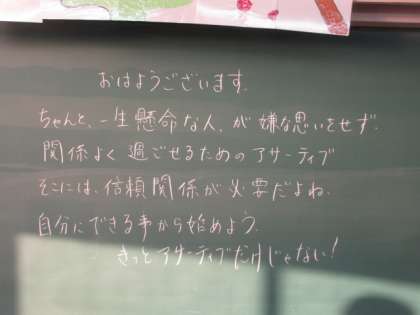 おはようございます.
ちゃんと、一生懸命な人、が嫌な思いをせず.
関係よく過ごせるためのアサーティブ
そこには、信頼関係が必要だよね.
自分にできる事から始めよう.
きっとアサーティブだけじゃない!